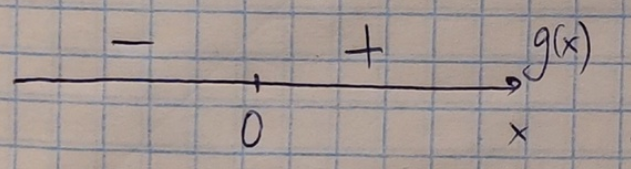 − + g(x)
0 x